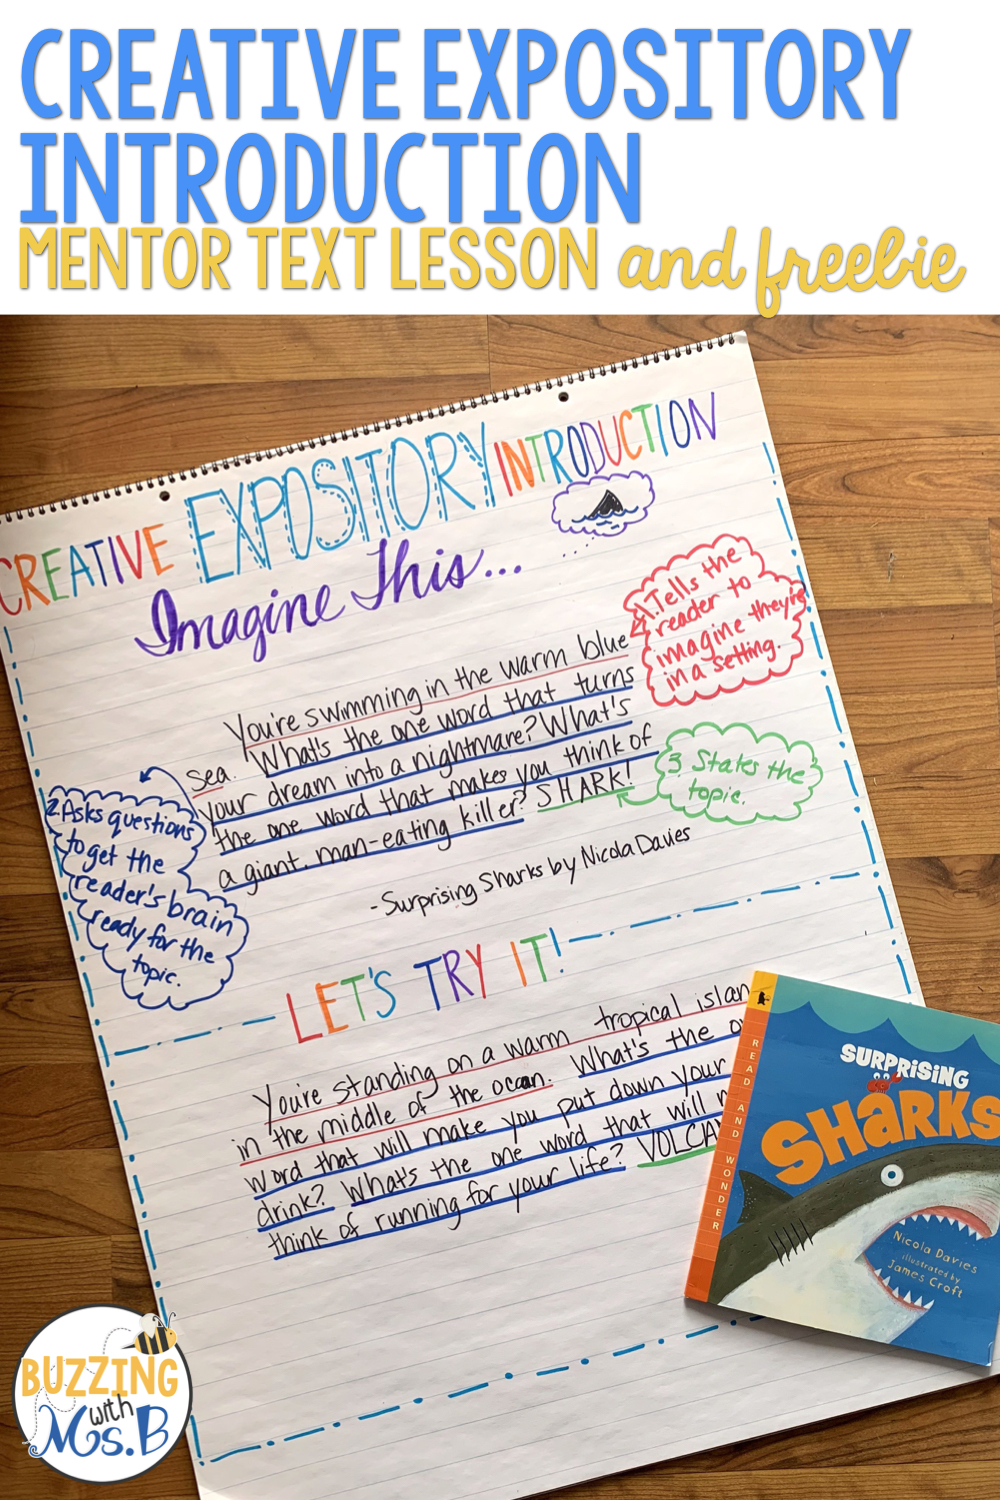 CREATIVE EXPOSITORY
INTRODUCTION
MENTOR TEXT LESSON and freebie
CREATIVE EXPOSITORY INTRODUCTION
Imagine This...
1. Tells the
reader to
imagine they're
in a setting.
You're swimming in the warm blue
sea. What's the one word that turns
your dream into a nightmare? What's
the one word that makes you think of
a giant, man-eating killer? SHARK!
2. Asks questions
to get the
reader's brain
ready for the
topic.
3. States the
topic.
-Surprising Sharks by Nicola Davies
LET'S TRY IT!
You're standing on a warm tropical islan
in the middle of the ocan. What's the o
word that will make you put down your
drink? What's the one word that will m
think of running for your life? VOLCA
READ AND WONDER
SURPRISING
SHARKS
Nicola Davies
illustrated by
James Croft
BUZZING
with
Ms. B